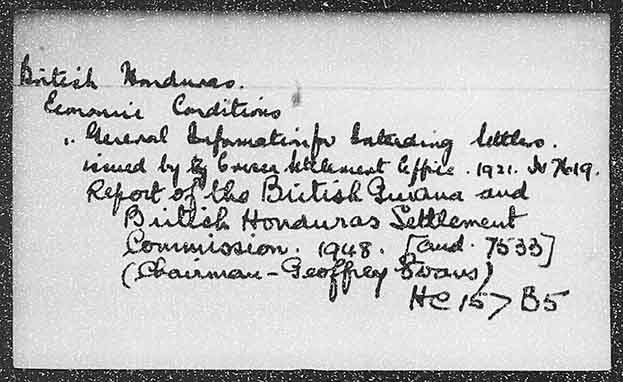 British Honduras.
Economic Conditions
,, General Information for Intending Settlers.
issued by Oversea Settlement Office. 1921.
Report of the British Guiana and
British Honduras Settlement
Commission. 1948. [cmd. 7533]
(Chairman - Geoffrey Evans)
HC 157 B5